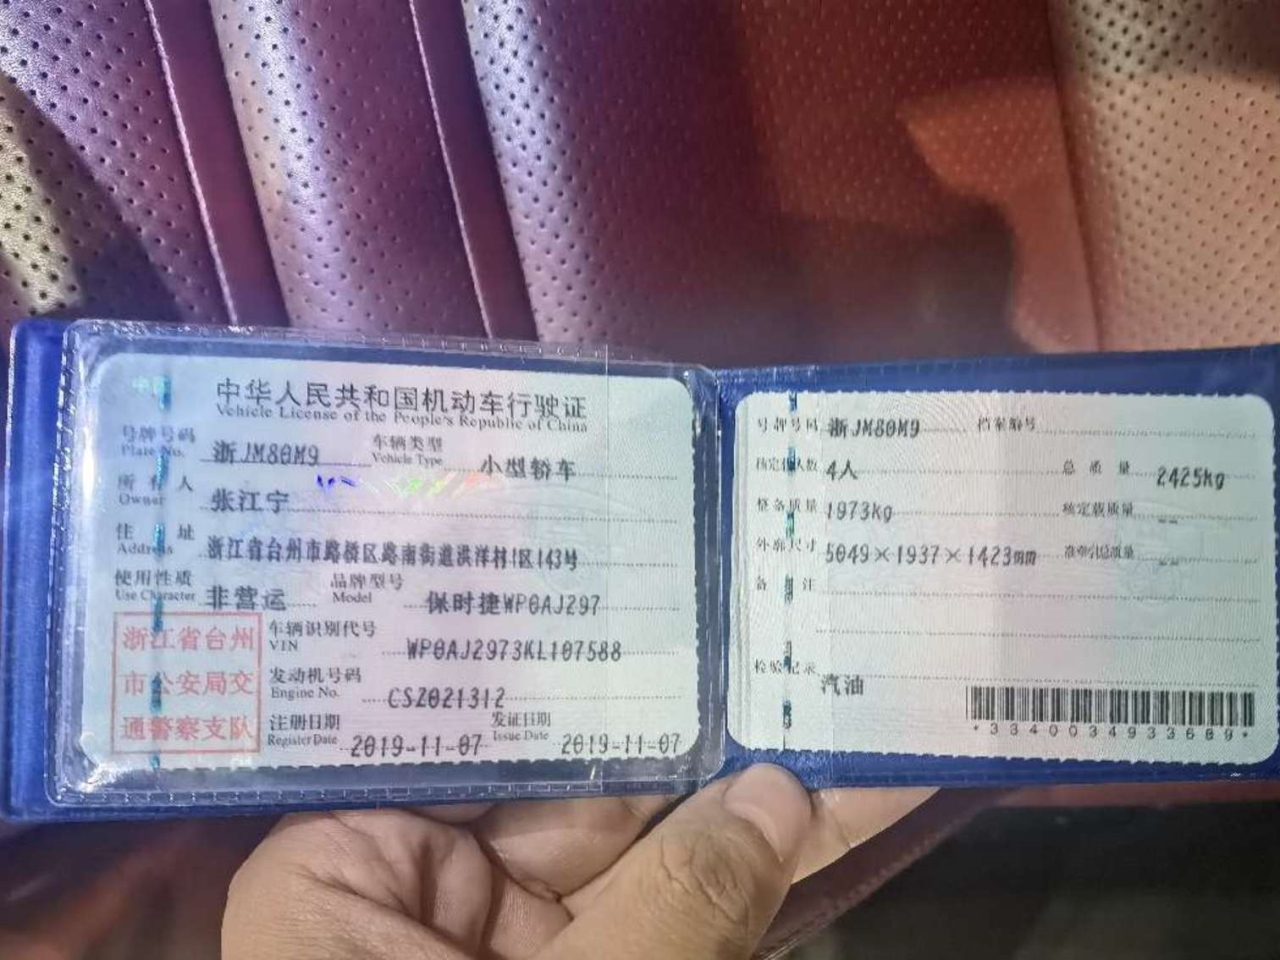 中华人民共和国机动车行驶证
Vehicle License of the People's Republic of China
号牌号码 浙JM80M9 车辆类型 小型轿车
Plate No. Vehicle Type
所有人 张江宁
Owner
住址 浙江省台州市路桥区路南街道洪洋村1区143号
Address
使用性质 非营运 品牌型号 保时捷WP0AJ297
Use Character Model
浙江省台州
市公安局交
通警察支队
车辆识别代号 WP0AJ2973KL107588
VIN
发动机号码 CSZ021312
Engine No.
注册日期 2019-11-07 发证日期 2019-11-07
Register Date Issue Date
号牌号码 浙JM80M9 档案编号
核定载人数 4人 总质量 2425kg
整备质量 1973kg 核定载质量 --
外廓尺寸 5049×1937×1423mm 准牵引总质量 --
备注
检验记录 汽油
*3340034933689*